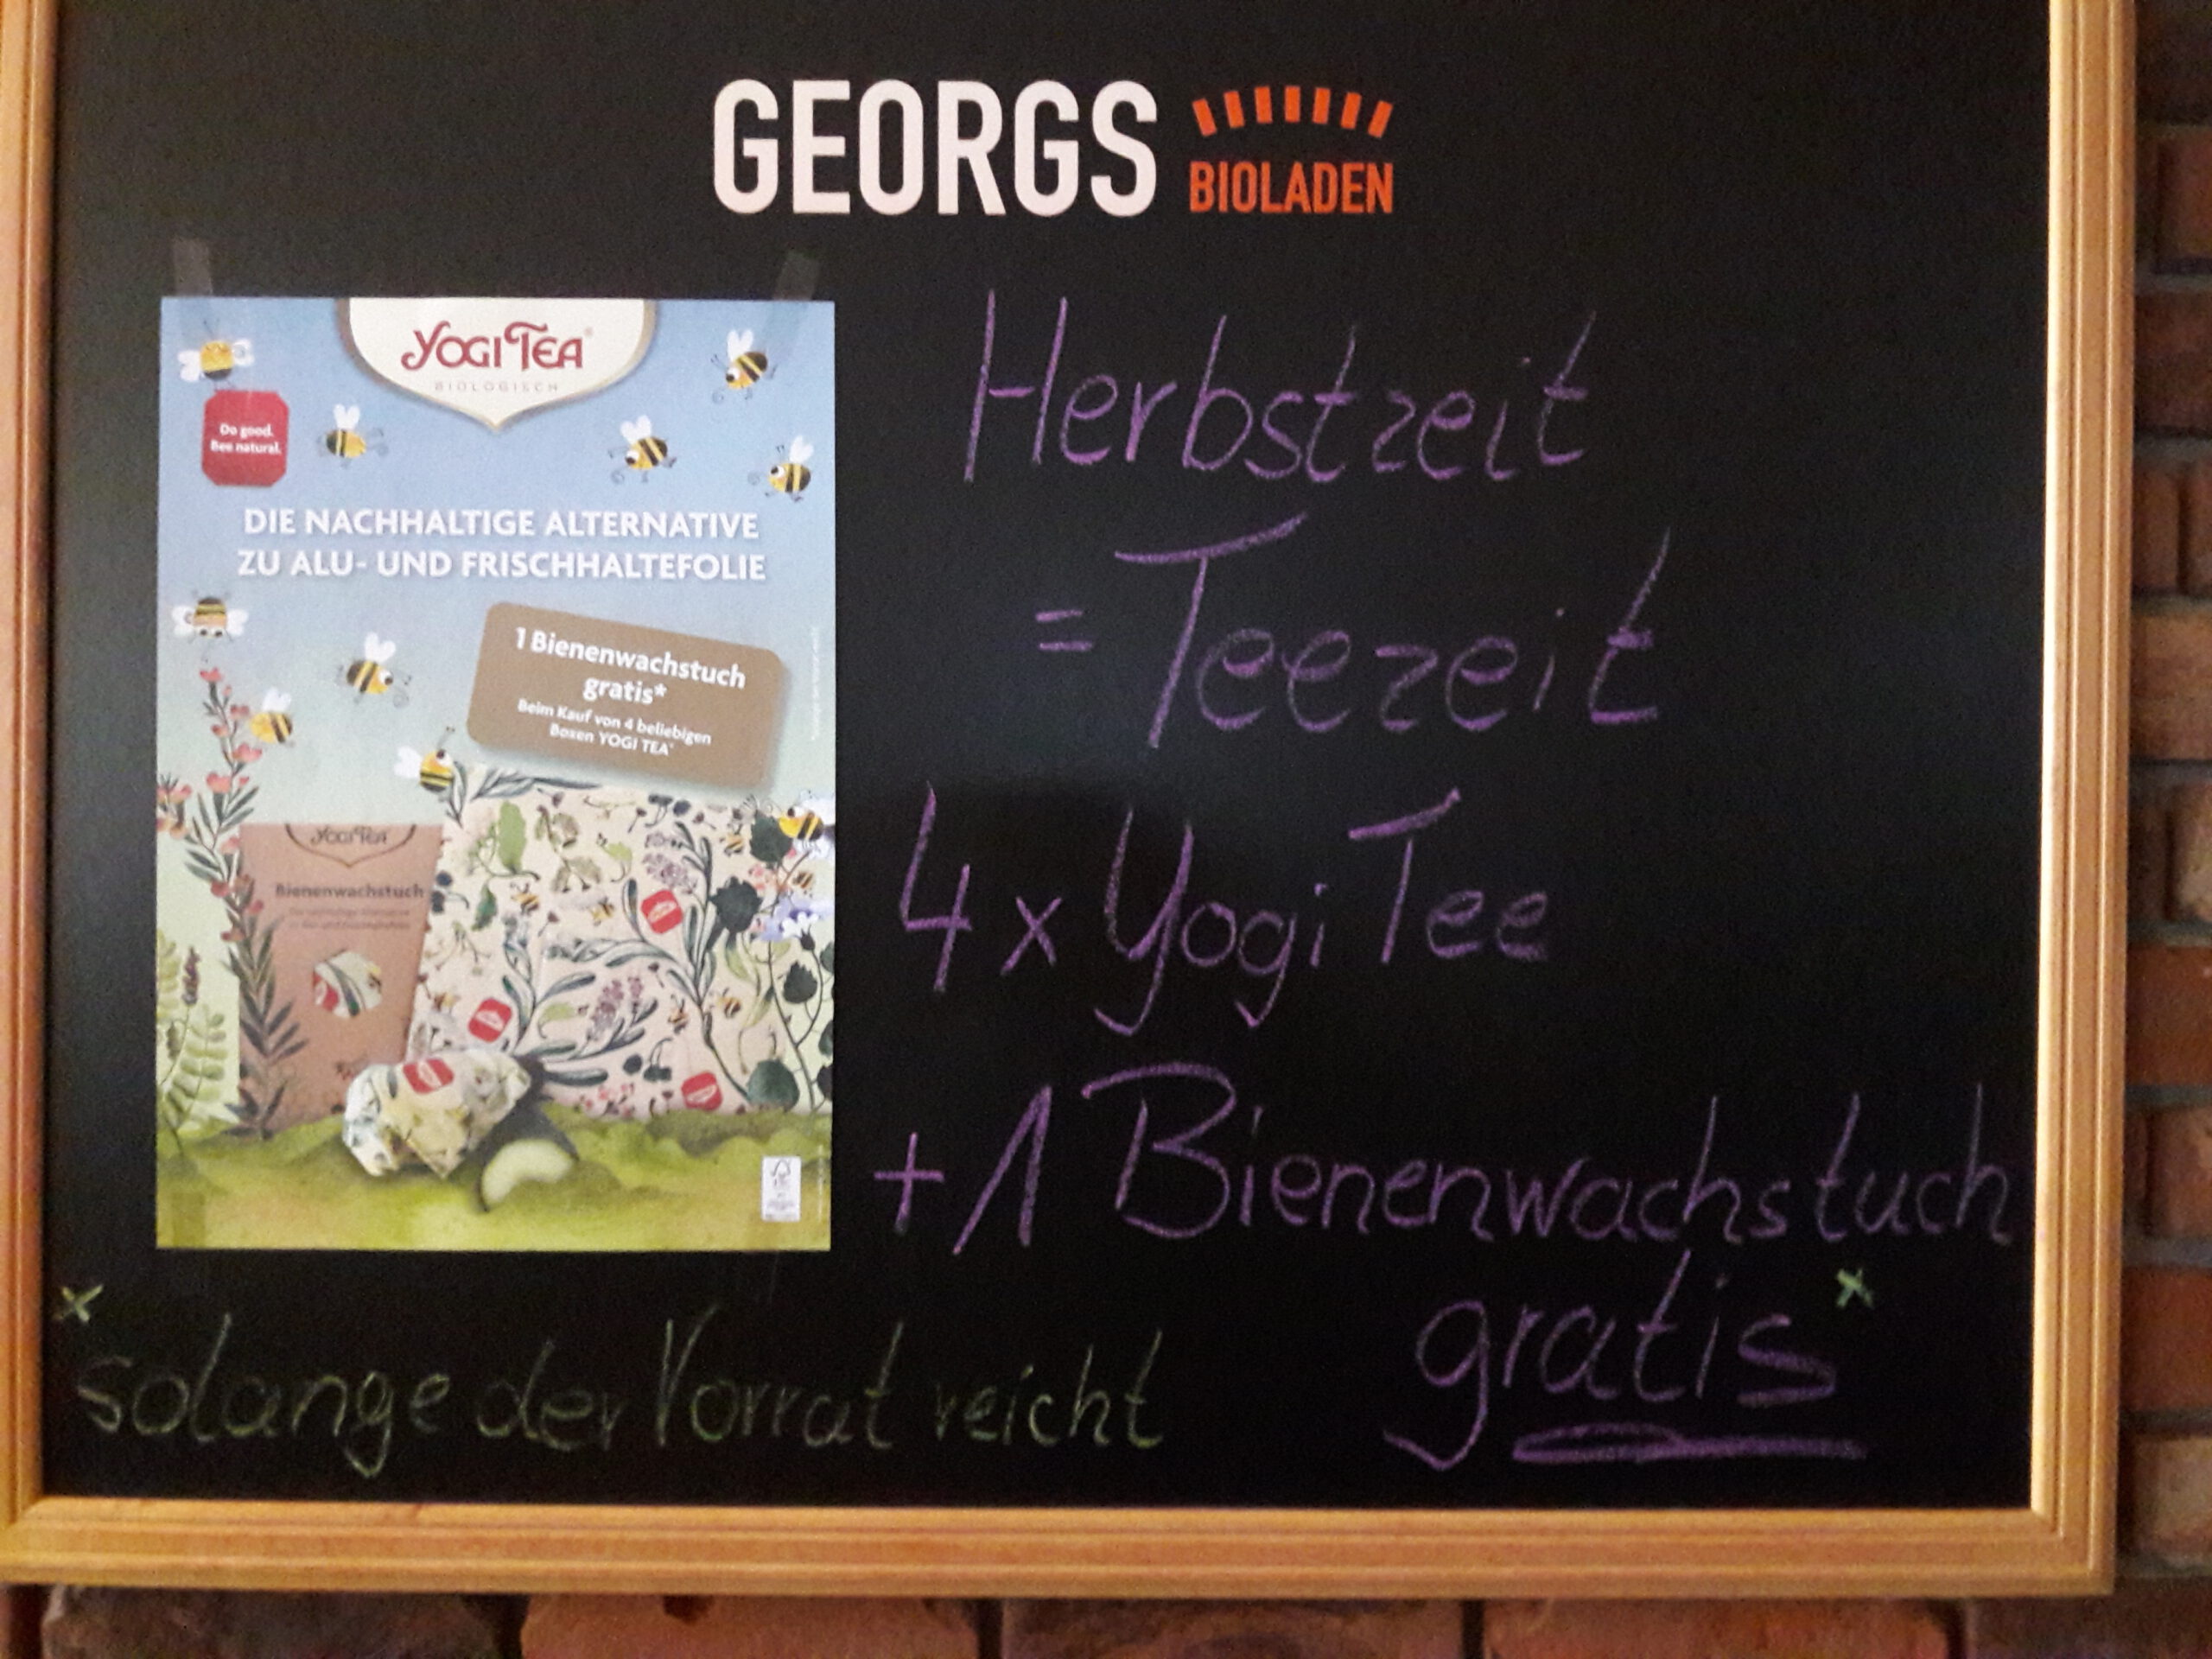 GEORGS BIOLADEN
YOGI TEA®
BIOLOGISCH
Do good.
Bee natural.
DIE NACHHALTIGE ALTERNATIVE
ZU ALU- UND FRISCHHALTEFOLIE
1 Bienenwachstuch
gratis*
Beim Kauf von 4 beliebigen
Boxen YOGI TEA®
YOGI TEA
Bienenwachstuch
Herbstzeit
= Teezeit
4 x Yogi Tee
+ 1 Bienenwachstuch
gratis x
x
solange der Vorrat reicht